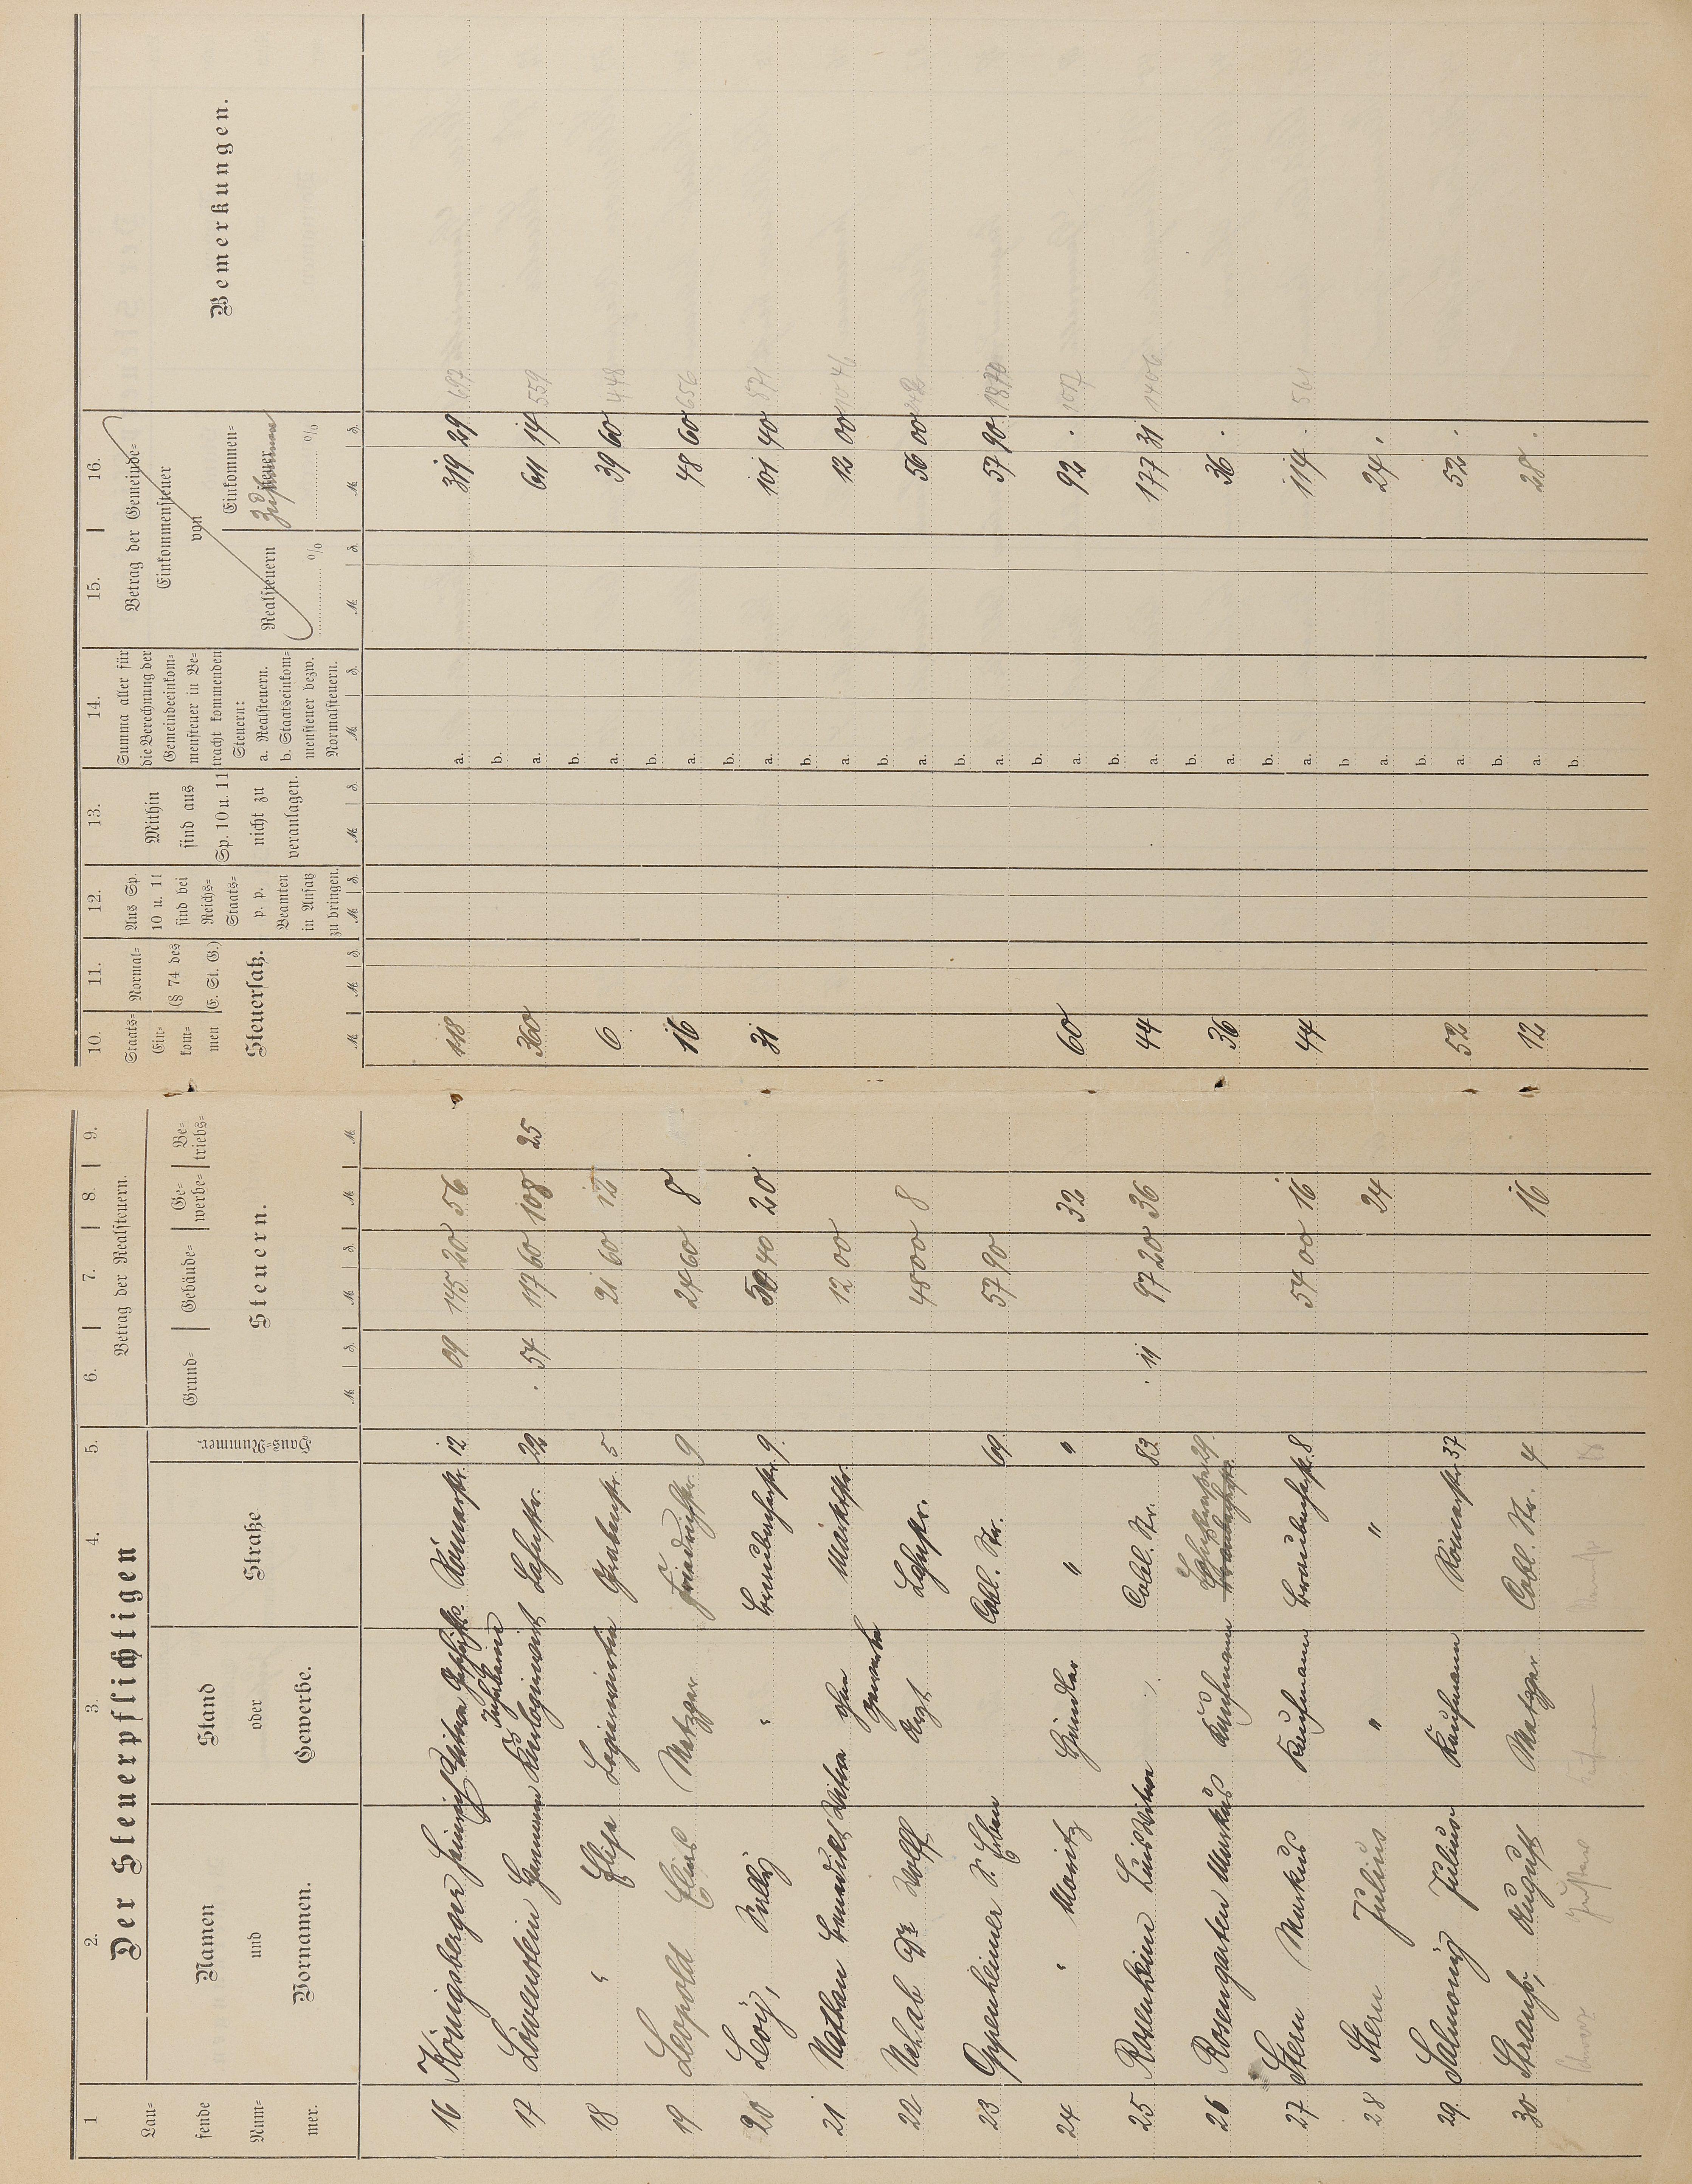 1 2. 3. 4. 5. 6. 7. 8. 9. 10. 11. 12. 13. 14. 15. 16.
Der Steuerpflichtigen
Lau-
fende
Num-
mer.
Namen
und
Vornamen.
Stand
oder
Gewerbe.
Straße
Haus-Nummer.
Betrag der Realsteuern.
Grund-
Gebäude-
Ge-
werbe-
Be-
triebs-
Steuern.
Staats-
Ein-
kom-
men
Normal-
(§ 74 des
E. St. G.)
Steuersatz.
Aus Sp.
10 u. 11
sind bei
Reichs-
Staats-
p. p.
Beamten
in Ansatz
zu bringen.
Mithin
sind aus
Sp. 10 u. 11
nicht zu
veranlagen.
Summa aller für
die Berechnung der
Gemeindeeinkom-
mensteuer in Be-
tracht kommenden
Steuern:
a. Realsteuern.
b. Staatseinkom-
mensteuer bezw.
Normalsteuern.
Betrag der Gemeinde-
Einkommensteuer
von
Realsteuern
%
Einkommen-
steuer
Zusammen
%
Bemerkungen.
16 Königsberger Heinrich Witwe Römerstr. 12 09 145 20 56 118 a. 319 29 697
b.
17 Löwenstein Hermann Lahnstr. 22 . 54 117 60 108 25 360 a. 611 14 559
b.
18 " Elise Logiswirtin Grabenstr. 5 21 60 12 6 a. 39 60 448
b.
19 Leopold Elias Metzger Friedrichstr. 9 24 60 8 16 a. 48 60 656
b.
20 Levy, " Braubacherstr. 9. 50 40 20 31 a. 101 40 571
b.
21 Nathan Benedikt Witwe ohne Gewerbe Marktstr. 12 00 a. 12 00 1046
b.
22 Wolff Arzt Lahnstr. 48 00 8 a. 56 00
b.
23 Oppenheimer Erben Cobl. Str. 69 57 90 a. 57 90 1870
b.
24 " Moritz Händler " " 32 60 a. 92 . 1077
b.
25 Rosenheim Louis Witwe Cobl. Str. 83. . 11 97 20 36 44 a. 177 31 1406
b.
26 Rosengarten Markus Kaufmann 29. 36 a. 36 .
b.
27. Stern Markus Kaufmann Braubacherstr. 8 54 00 16 44 a. 114 . 561
b
28 Stern Julius " " 24 a. 24 .
b.
29. Salmony Julius Kaufmann Römerstr. 37 52 a. 52 .
b.
30 Strauß, August Metzger Cobl. Str. 4 16 12 a. 28 .
b.